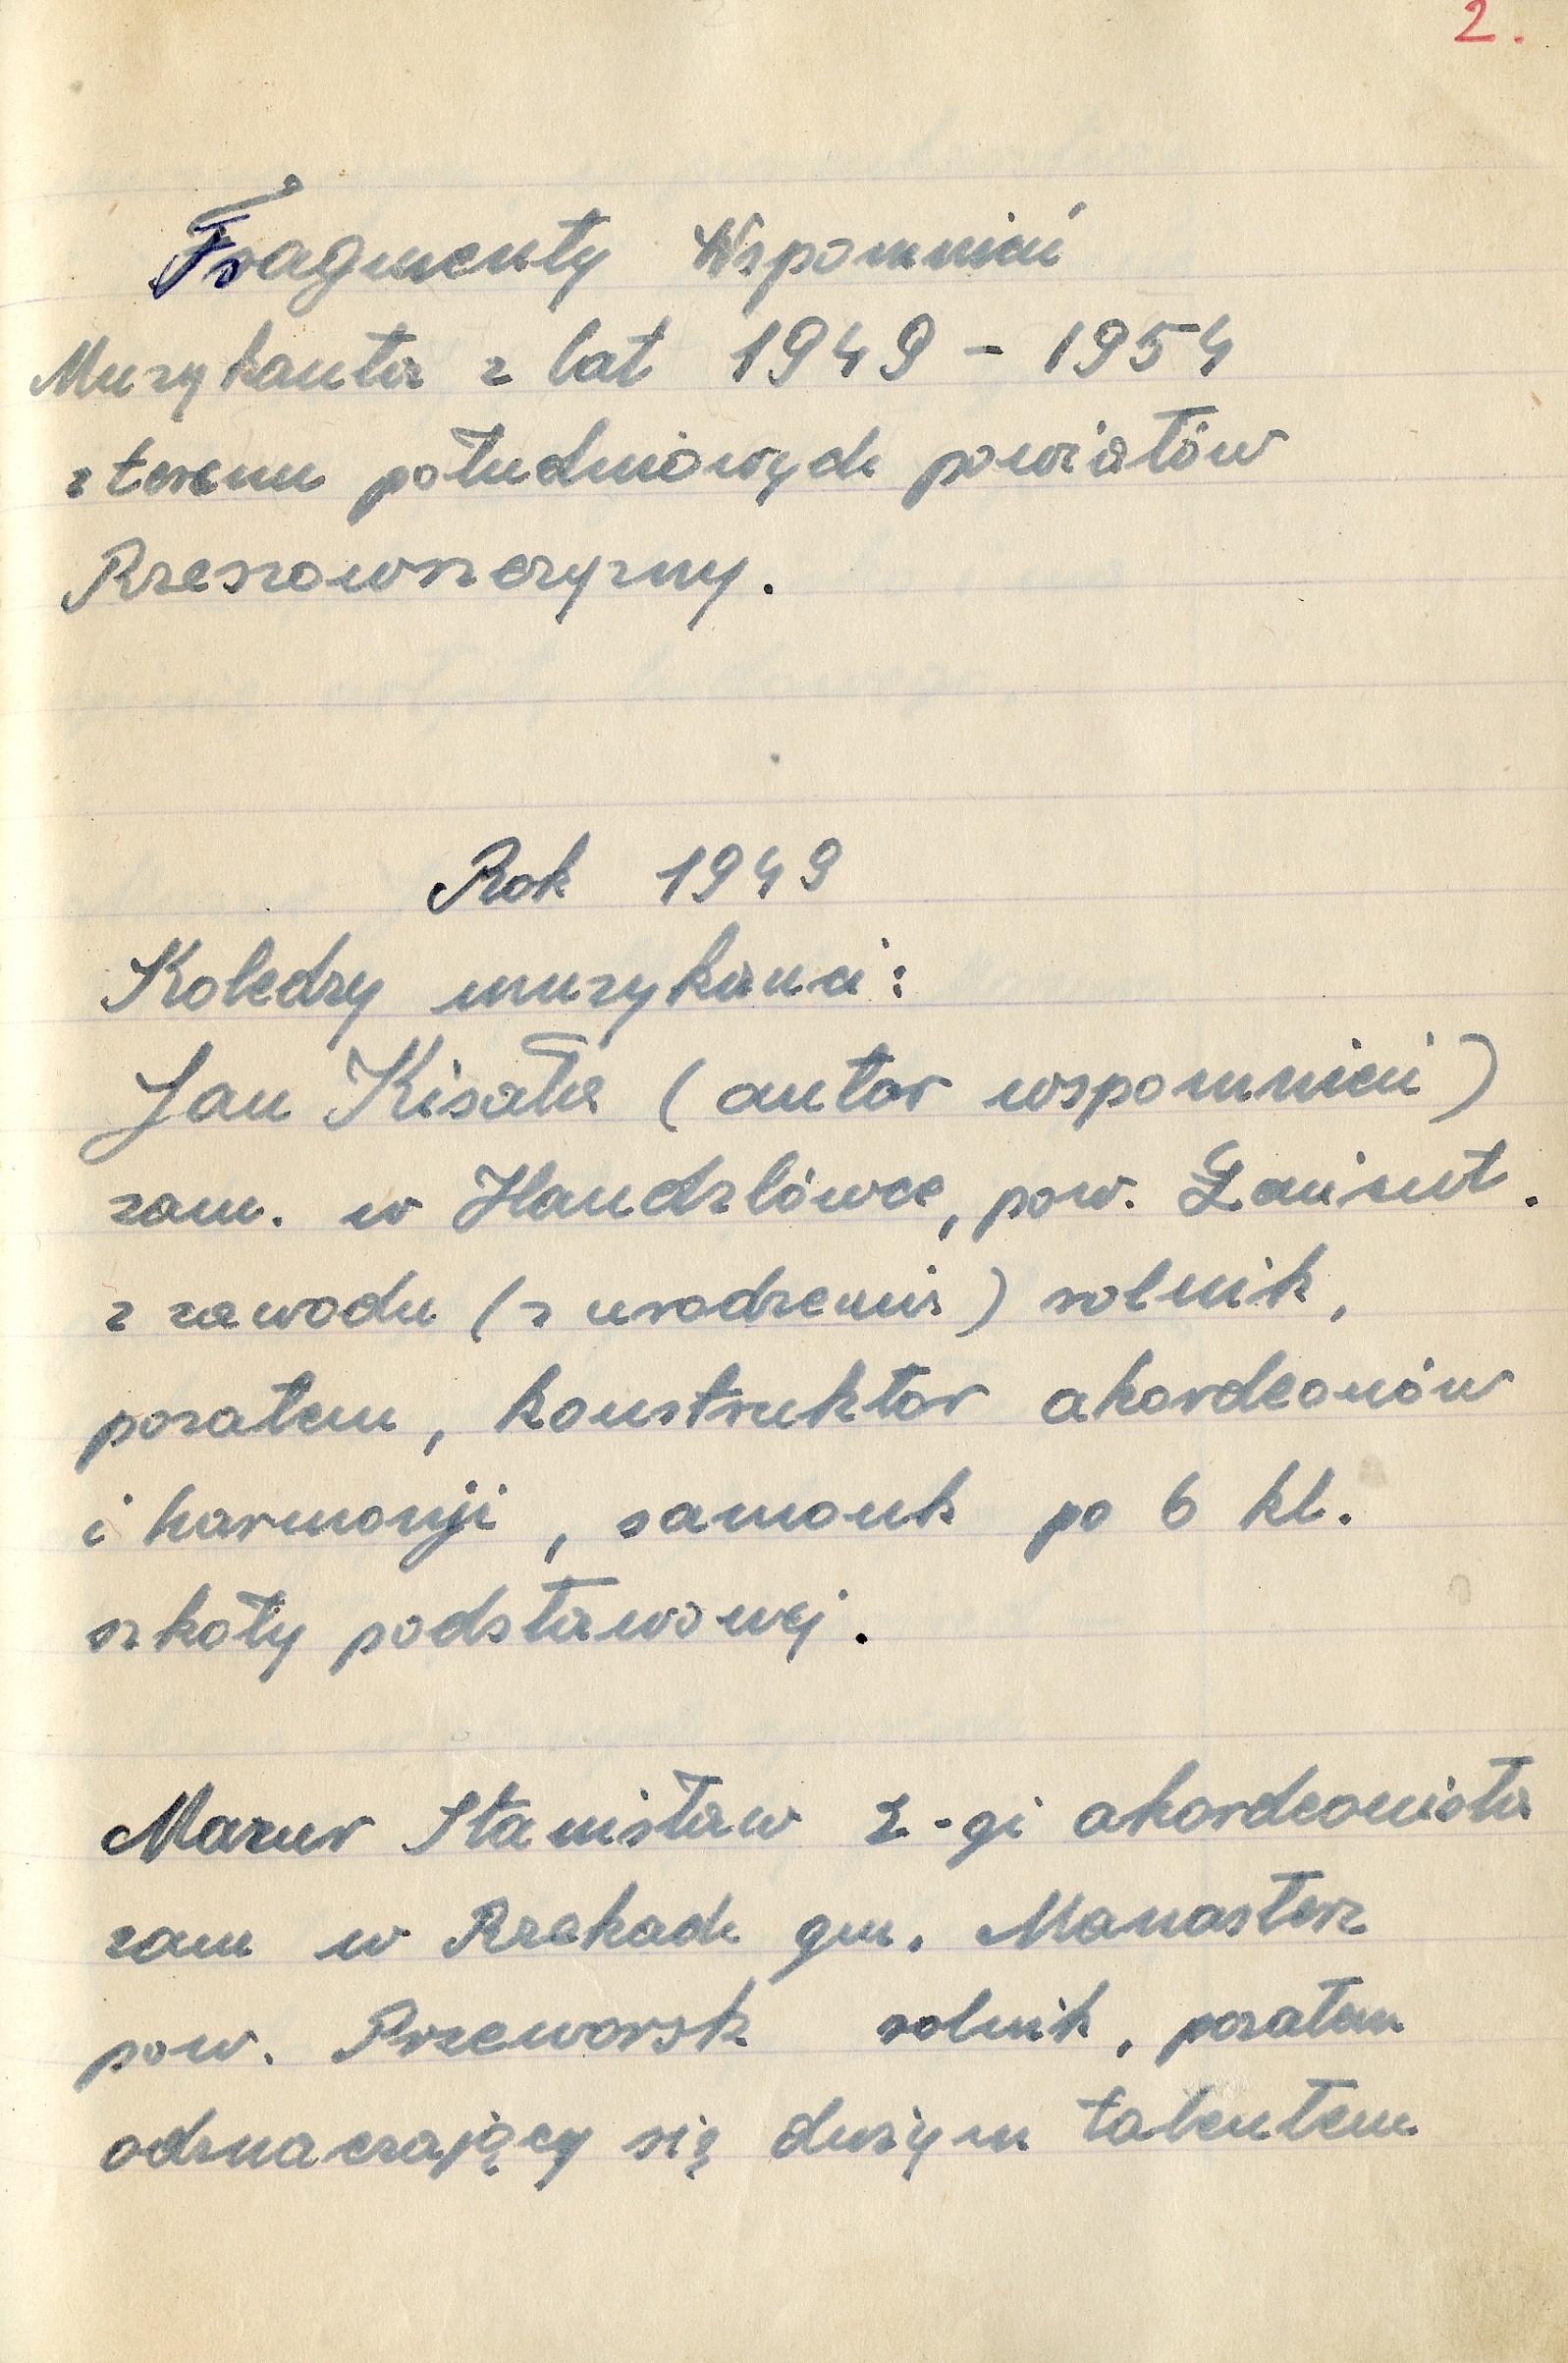 2.
Fragmenty Wspomnień
Muzykanta z lat 1949 - 1954
z terenu południowych powiatów
Rzeszowszczyzny.
Rok 1949
Koledzy muzykanci:
Jan Kisała (autor wspomnień)
zam. w Handzlówce, pow. Łańcut.
z zawodu (z urodzenia) rolnik,
pozatem, konstruktor akordeonów
i harmonji, samouk po 6 kl.
szkoły podstawowej.
Mazur Stanisław 2-gi akordeonista
zam w Rzekach gm. Manasterz
pow. Przeworsk rolnik, pozatem
odznaczający się dużym talentem